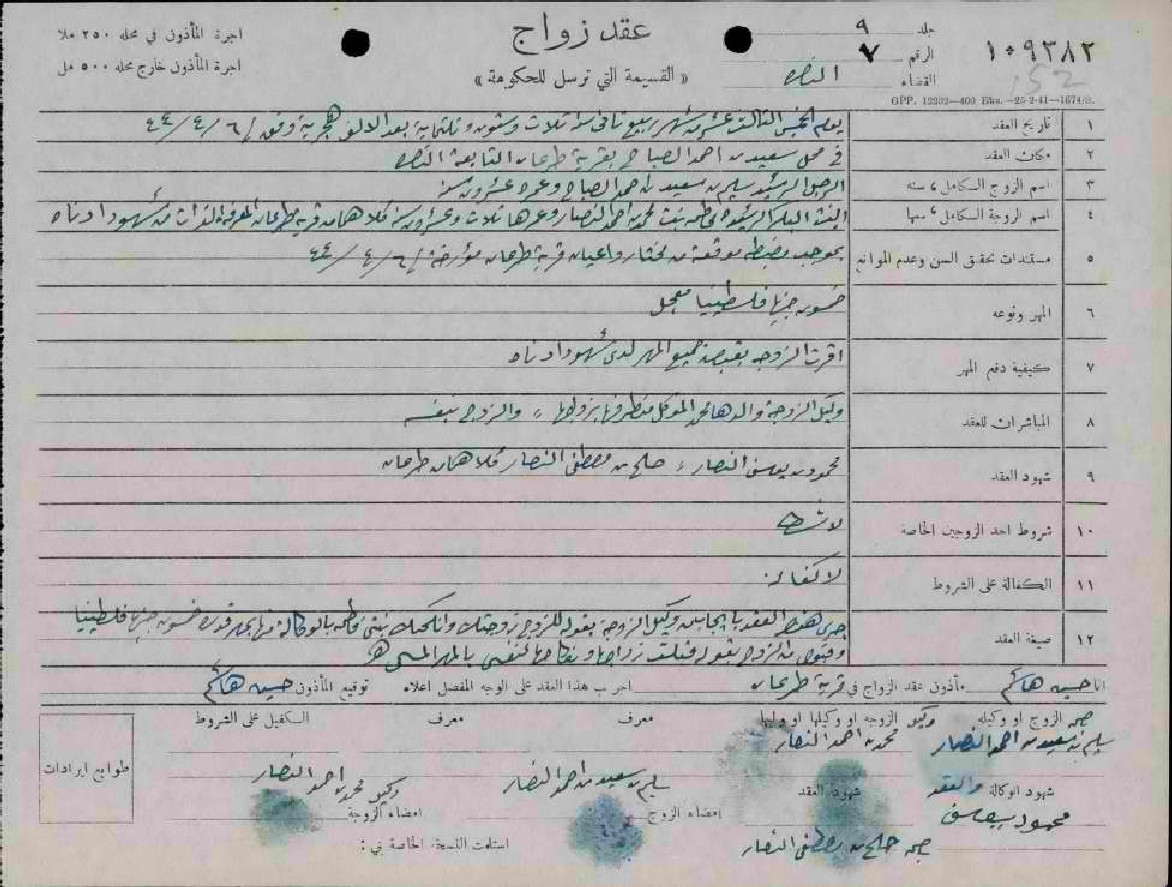 اجرة المأذون في محله ٢٥٠ ملا
اجرة المأذون خارج محله ٥٠٠ مل
عقد زواج
« القسيمة التي ترسل للحكومة »
جلد ٩
الرقم ٧
القضاء
١٠٩٣٨٢
152
GPP. 12232—400 Bks.—25-2-41—1674/S.
١ تاريخ العقد يوم الخميس الثالث عشر من شهر ربيع ثاني سنة ثلاث وستون وثلثماية بعد الالف هجرية وفق ٦/٤/٤٤
٢ مكان العقد في محل سعيد بن احمد بقرية طرعان التابعة
٣ اسم الزوج الكامل وسنه الرجل الرشيد سليم بن سعيد بن احمد وعمره عشرون سنة
٤ اسم الزوجة الكامل وسنها البنت البكر الرشيدة فاطمه بنت محمد بن احمد النصار وعمرها ثلاث وعشرون سنة كلاهما من قرية طرعان شهود ادناه
٥ مستندات تحقق السن وعدم الموانع بموجب مضبطه موقعة من مختار واعيان قرية طرعان مؤرخة ٦/٤/٤٤
٦ المهر ونوعه خمسون جنيها فلسطينيا معجل
٧ كيفية دفع المهر اقرت الزوجه بقبضه جميع المهر لدى شهود ادناه
٨ المباشران للعقد وكيل الزوجة والدها محمد المتوكل من طرفها بزواجها والزوج بنفسه
٩ شهود العقد محمود بن يوسف النصار و صلح بن مصطفى النصار كلاهما من طرعان
١٠ شروط احد الزوجين الخاصة لا شروط
١١ الكفالة على الشروط لا كفاله
١٢ صيغة العقد جرى هذا العقد بايجاب من وكيل الزوجة بقوله للزوج زوجتك وانكحتك بنتي فاطمه بالوكالة عنها بمهر قدره خمسون جنيها فلسطينيا
وقبول من الزوج بقوله قبلت زواجها ونكاحها لنفسي بالمهر المسمى
انا حسين مأذون عقد الزواج في قرية طرعان اجريت هذا العقد على الوجه المفصل اعلاه توقيع المأذون حسين
الزوج او وكيله الزوجه او وكيلها او وليها معرف معرف الكفيل على الشروط
سليم بن سعيد بن احمد النصار محمد بن احمد النصار
طوابع ايرادات
شهود الوكالة والعقد شهود العقد سليم بن سعيد بن احمد النصار محمد بن احمد النصار
امضاء الزوج امضاء الزوجة
محمود يوسف
صلح بن مصطفى النصار
استلمت النسخة الخاصة بي :